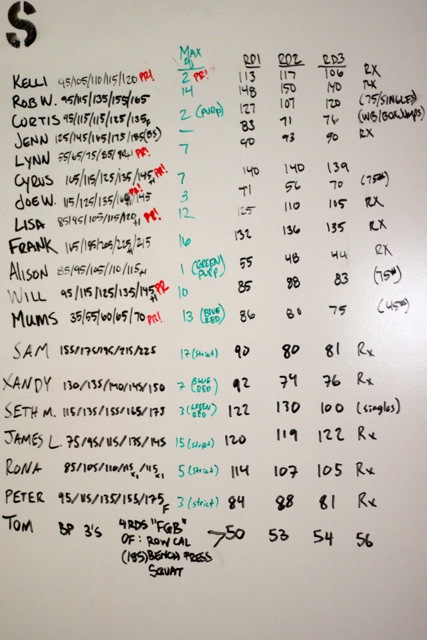 S
MAX PU RD1 RD2 RD3
KELLI 95/105/110/115/120 PR! 2 PR! 113 117 106 RX
ROB W. 95/115/135/155/165 14 148 150 140 RX
CURTIS 95/115/115/125/135F 2 (PURP) 127 107 120 (75/SINGLES)
JENN 125/145/165/175/185(85) 83 71 76 (WB/BOX JUMPS)
LYNN 55/65/75/85/94! PR! 7 90 93 90 RX
CYRUS 105/115/125/135/145 PR! 7 140 140 139
JOE W. 115/125/135/145 PR! 3 71 56 70 (75#)
LISA 85/95/105/115/120 PR! 12 125 110 105 RX
FRANK 215 16 132 136 135 RX
ALISON 85/95/105/110/115 1 (GREEN/PURP) 55 48 44 RX
WILL 95/115/125/135/145 PR 10 85 88 83 (75#)
MUMS 35/55/60/65/70 PR! 13 (BLUE/RED) 86 80 75 (45#)
SAM 155/175/195/215/225 17 (strict) 90 80 81 Rx
XANDY 130/135/140/145/150 7 (BLUE/RED) 92 74 76 Rx
SETH M. 115/135/155/165/175 3 (GREEN/RED) 122 130 100 (singles)
JAMES L. 75/95/115/135/145 15 (strict) 120 119 122 Rx
RONA 85/105/110/115/115 5 (strict) 114 107 105 Rx
PETER 95/115/135/155/175F 3 (strict) 84 88 81 Rx
TOM BP 3'S 4 RDS "FGB" 50 53 54 56
OF: ROW CAL
(185) BENCH PRESS
SQUAT